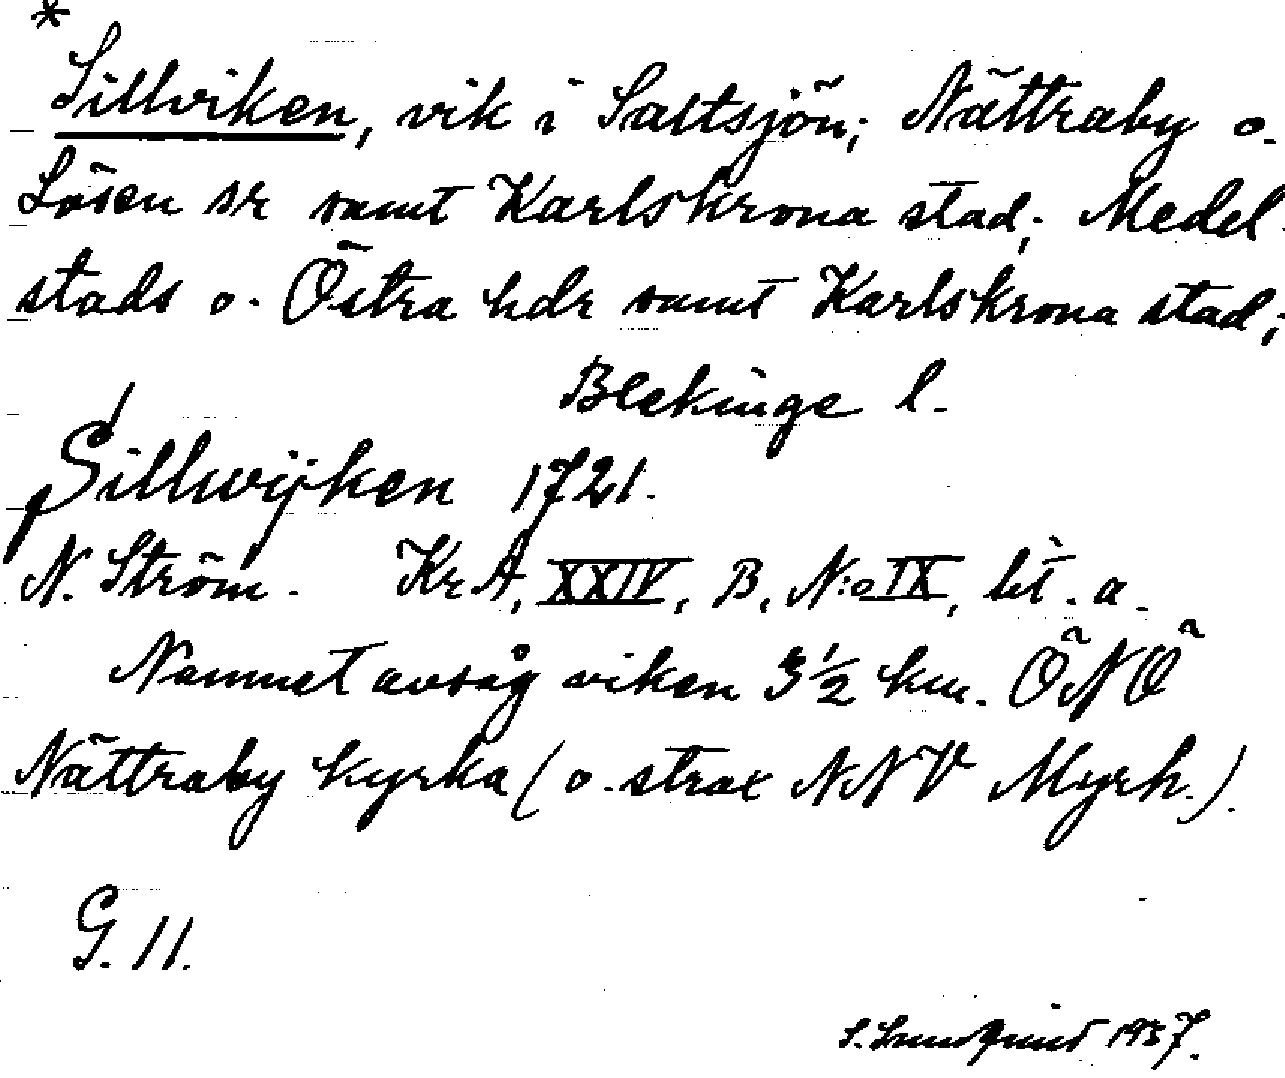 *
Sillviken, vik i Saltsjön; Nättraby o.
Lösen sr samt Karlskrona stad; Medel-
stads o. Östra hdr samt Karlskrona stad;
Blekinge l.
Sillwijken 1721.
N. Ström. KrA, XXIV, B, N:o IX, lit. a.
Namnet avsåg viken 3 1/2 km. ÖNÖ
Nättraby kyrka (o. strax NNV Myrh.).
G. 11.
S. Lundquist 1957.